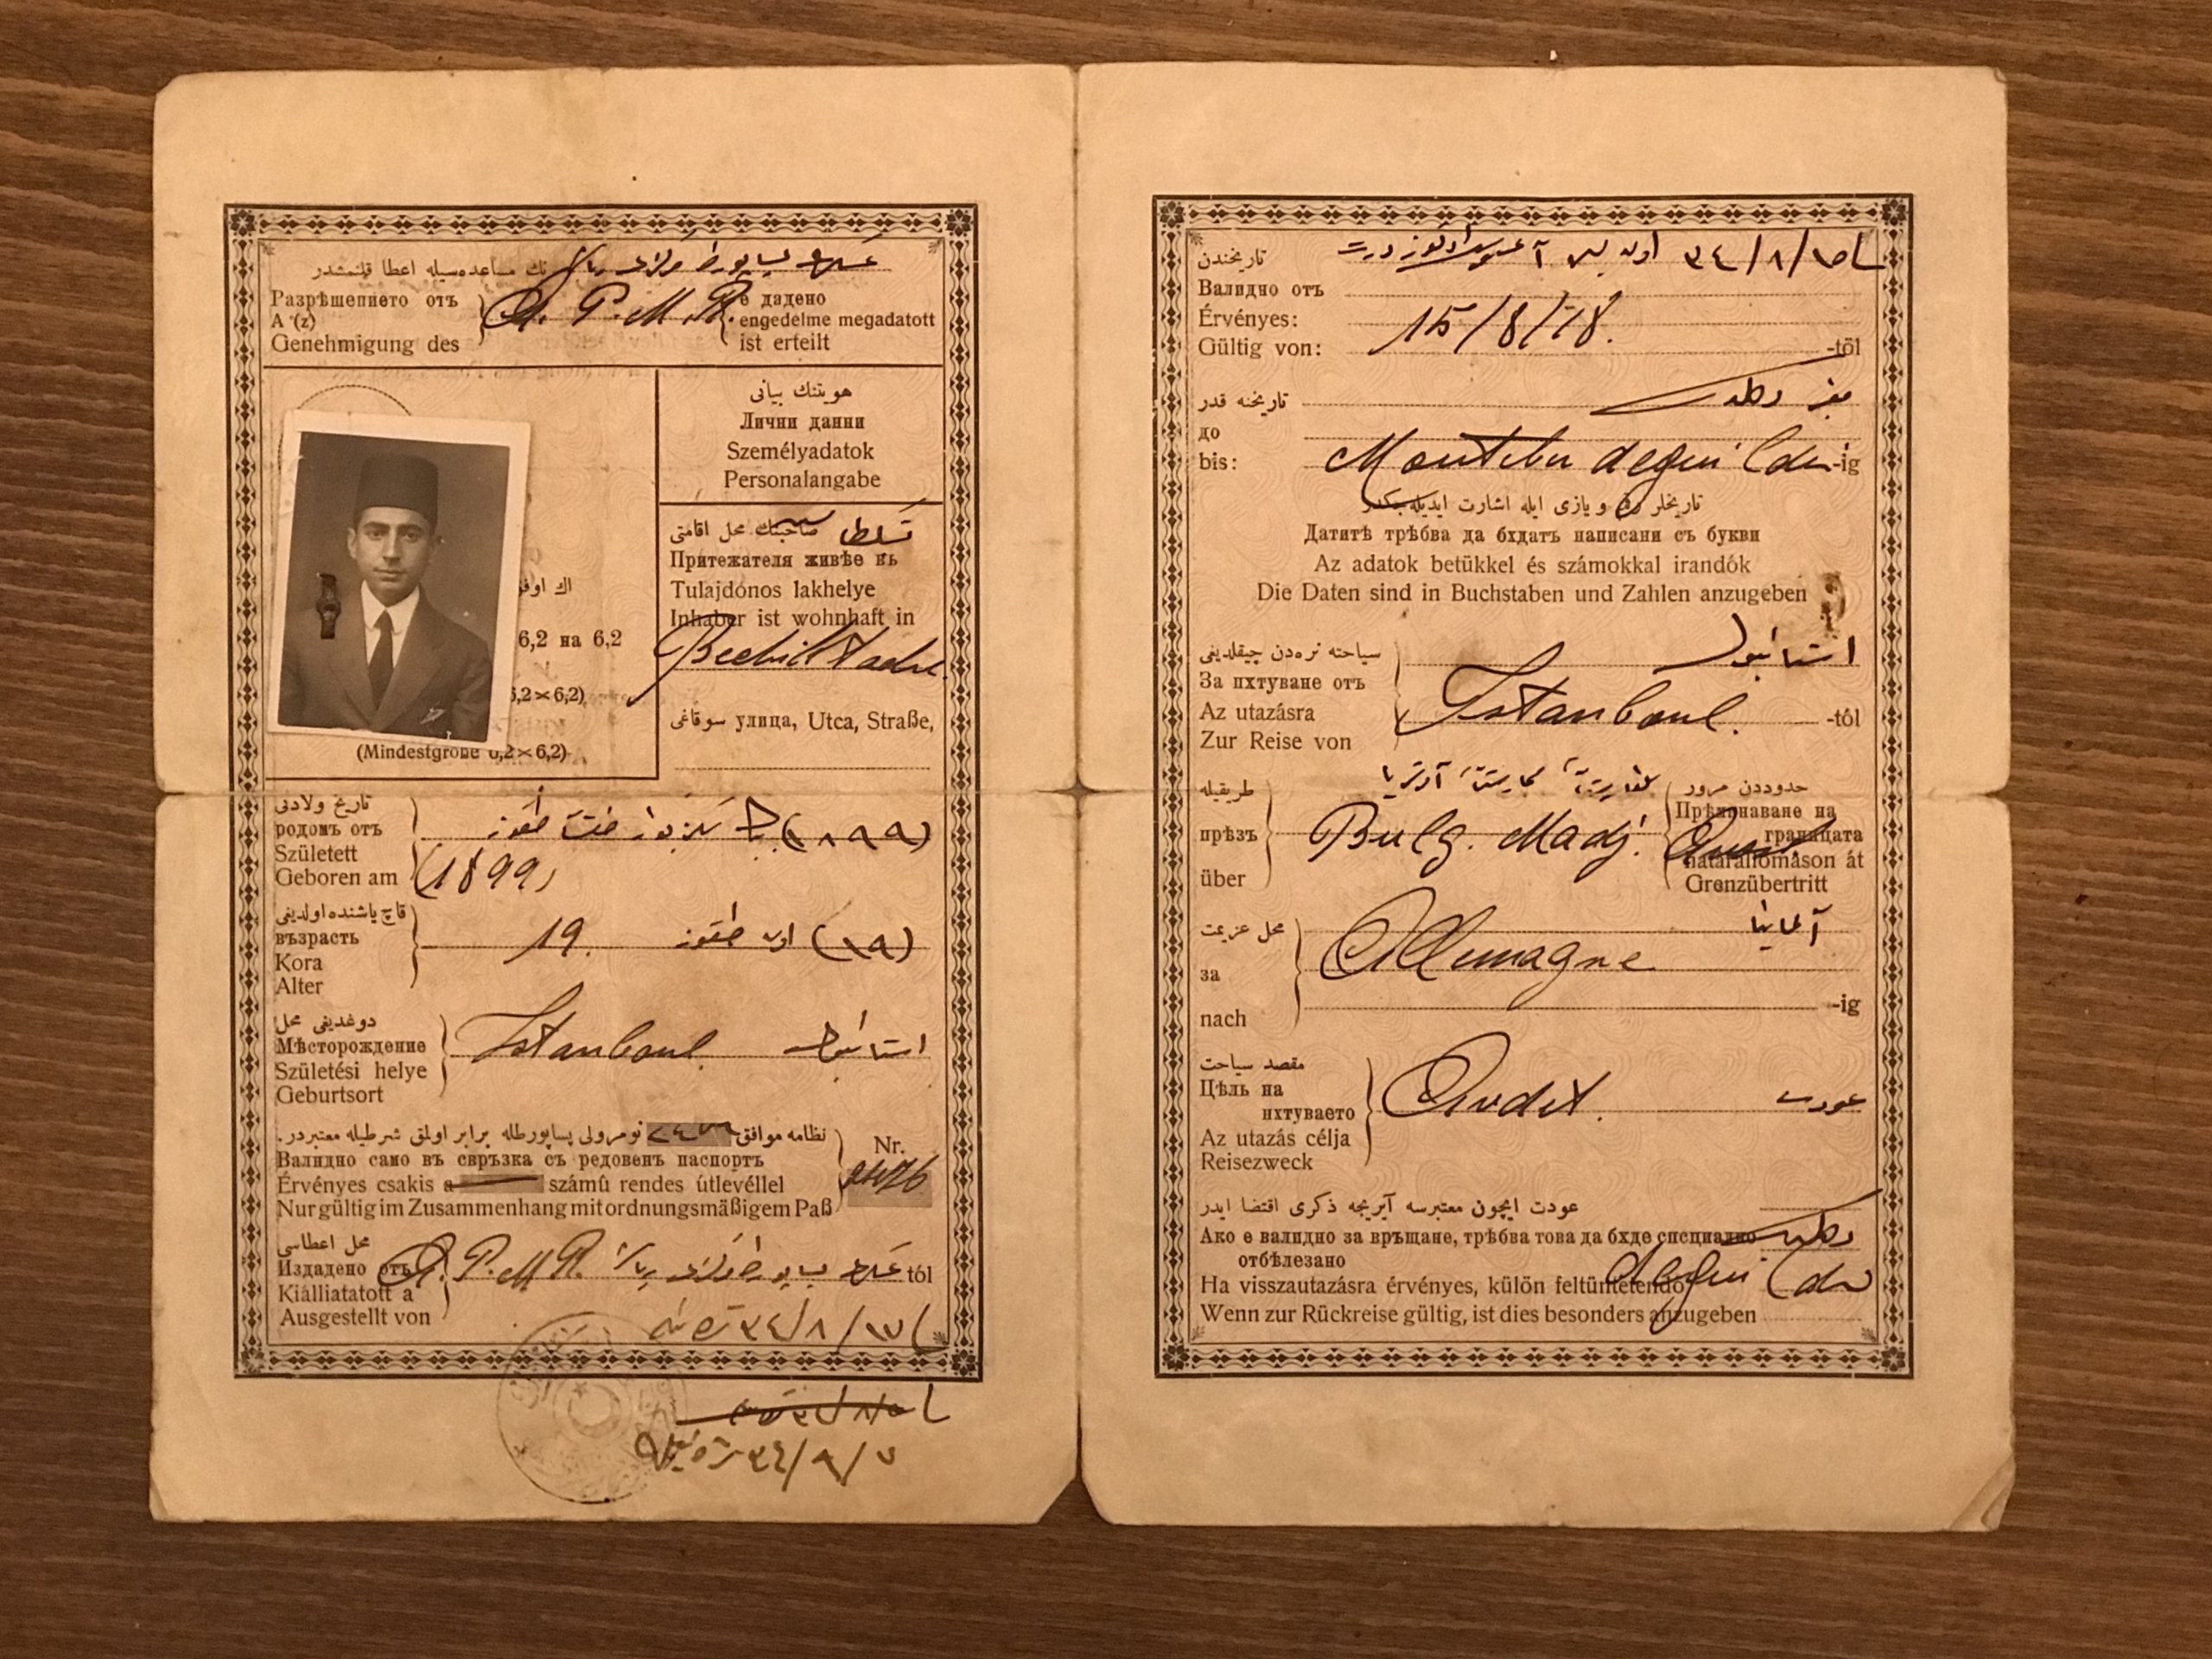 نك مساعده‌سيله اعطا قلنمشدر
Разрѣшението отъ
A (z)
Genehmigung des
A. P. M. R.
е дадено
engedelme megadatott
ist erteilt
هويتنك بيانى
Лични данни
Személyadatok
Personalangabe
صاحبنك محل اقامتى
Притежателя живѣе въ
Tulajdónos lakhelye
Inhaber ist wohnhaft in
سوقاغى улица, Utca, Straße,
اك اوفق
6,2 на 6,2
6,2×6,2)
(Mindestgröße 6,2×6,2)
تاريخ ولادتى
родомъ отъ
Született
Geboren am
(١٨٩٩)
(1899)
قاچ ياشنده اولديغى
възрасть
Kora
Alter
19. اون طقوز (١٩)
دوغديغى محل
Мѣсторождение
Születési helye
Geburtsort
Istanboul استانبول
نظامه موافق نومرولى پساپورطله برابر اولمق شرطيله معتبردر.
Валидно само въ свръзка съ редовенъ паспортъ
Érvényes csakis a számú rendes útlevéllel
Nur gültig im Zusammenhang mit ordnungsmäßigem Paß
Nr.
2476
محل اعطاسى
Издадено отъ
Kiálliatatott a
Ausgestellt von
A. P. M. R.
tól
تاريخندن
Валидно отъ
Érvényes:
Gültig von:
١٥/٨/٣٤
15/8/18.
-től
تاريخنه قدر
до
bis:
Mouteber deguildir
-ig
تاريخلر و يازى ايله اشارت ايديله‌جكدر
Датитѣ трѣбва да бждатъ написани съ букви
Az adatok betükkel és számokkal irandók
Die Daten sind in Buchstaben und Zahlen anzugeben
سياحته نره‌دن چيقلديغى
За пхтуване отъ
Az utazásra
Zur Reise von
استانبول
Istanboul.
-tól
طريقيله
прѣзъ
über
Bulg. Madj.
حدوددن مرور
Прѣминаване на
границата
határállomáson át
Grenzübertritt
محل عزيمت
за
nach
آلمانيا
Allemagne
-ig
مقصد سياحت
Цѣль на
пхтуваето
Az utazás célja
Reisezweck
Avdet. عودت
عودت ايچون معتبرسه آيريجه ذكرى اقتضا ايدر
Ако е валидно за връщане, трѣбва това да бхде специално
отбѣлезано
Ha visszautazásra érvényes, külön feltüntetendő
Wenn zur Rückreise gültig, ist dies besonders anzugeben
deguildir